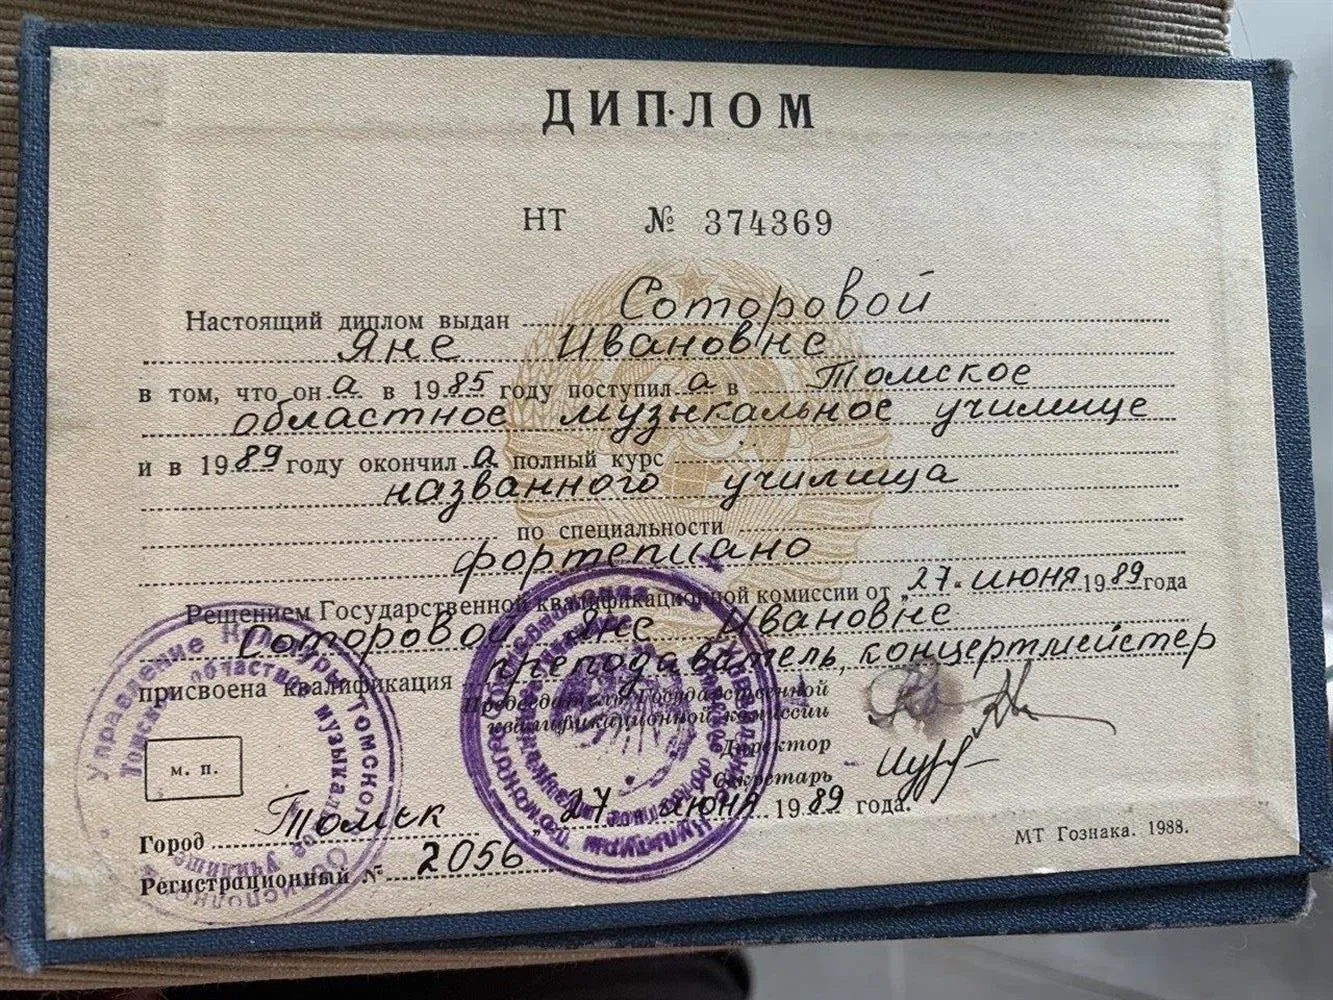 ДИПЛОМ
НТ № 374369
Настоящий диплом выдан Соторовой
Яне Ивановне
в том, что он а в 1985 году поступил а в Томское
областное музыкальное училище
и в 1989 году окончил а полный курс
названного училища
по специальности
фортепиано
Решением Государственной квалификационной комиссии от „27“ июня 1989 года
Соторовой Яне Ивановне
присвоена квалификация преподаватель, концертмейстер
Председатель Государственной
квалификационной комиссии
Директор
Секретарь
м. п.
„27“ июня 1989 года.
Город Томск
Регистрационный № 2056
МТ Гознака. 1988.
Управление Культуры Томского Облисполкома
Томское областное музыкальное Училище